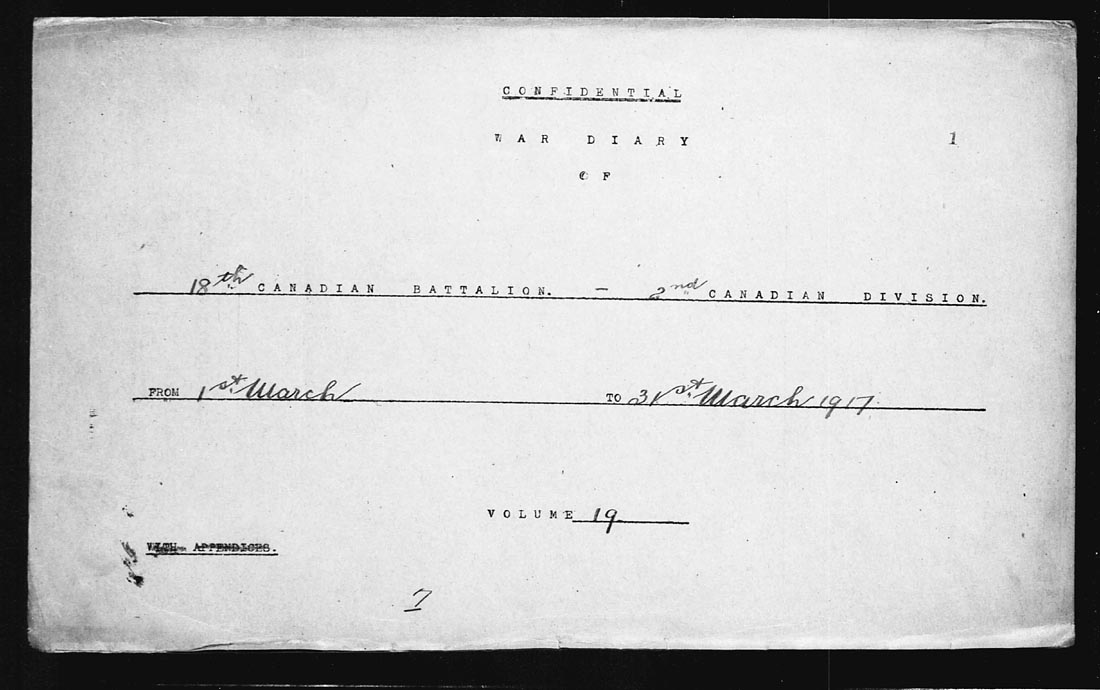 CONFIDENTIAL
WAR DIARY
1
OF
18th CANADIAN BATTALION. – 2nd CANADIAN DIVISION.
FROM 1st March TO 31st March 1917
VOLUME 19
WITH APPENDICES.
7